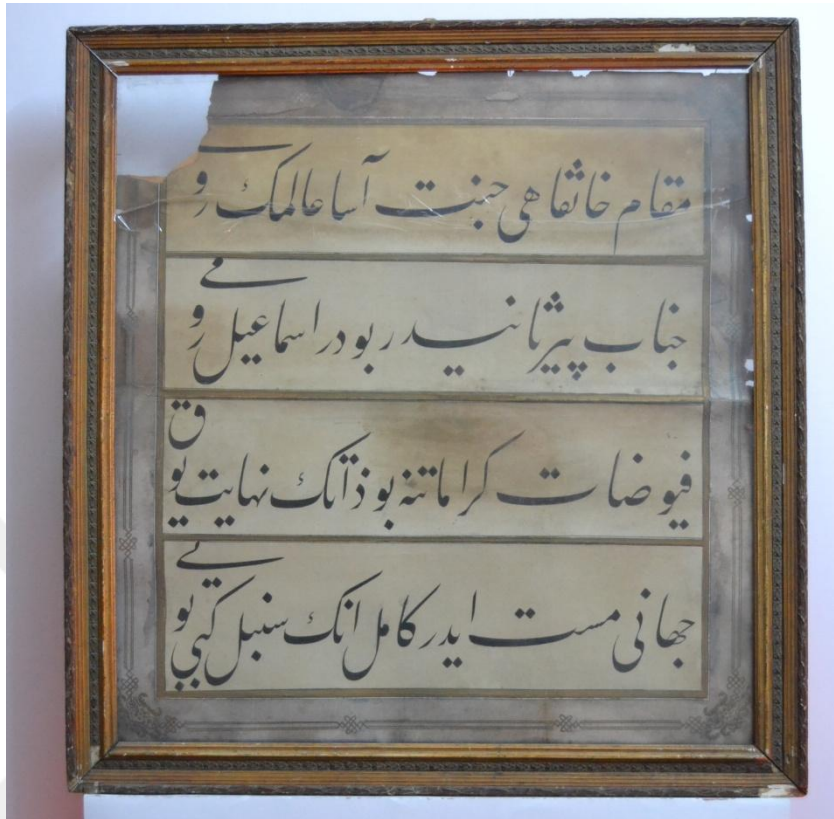 مقام خانقاهی جنت آسا عالمك
جناب پیر ثانیدر بودر اسماعیل رومی
فیوضات كراماتنه بو ذاتك نهایت یوق
جهانی مست ایدر كامل انك سنبل كبی بویی